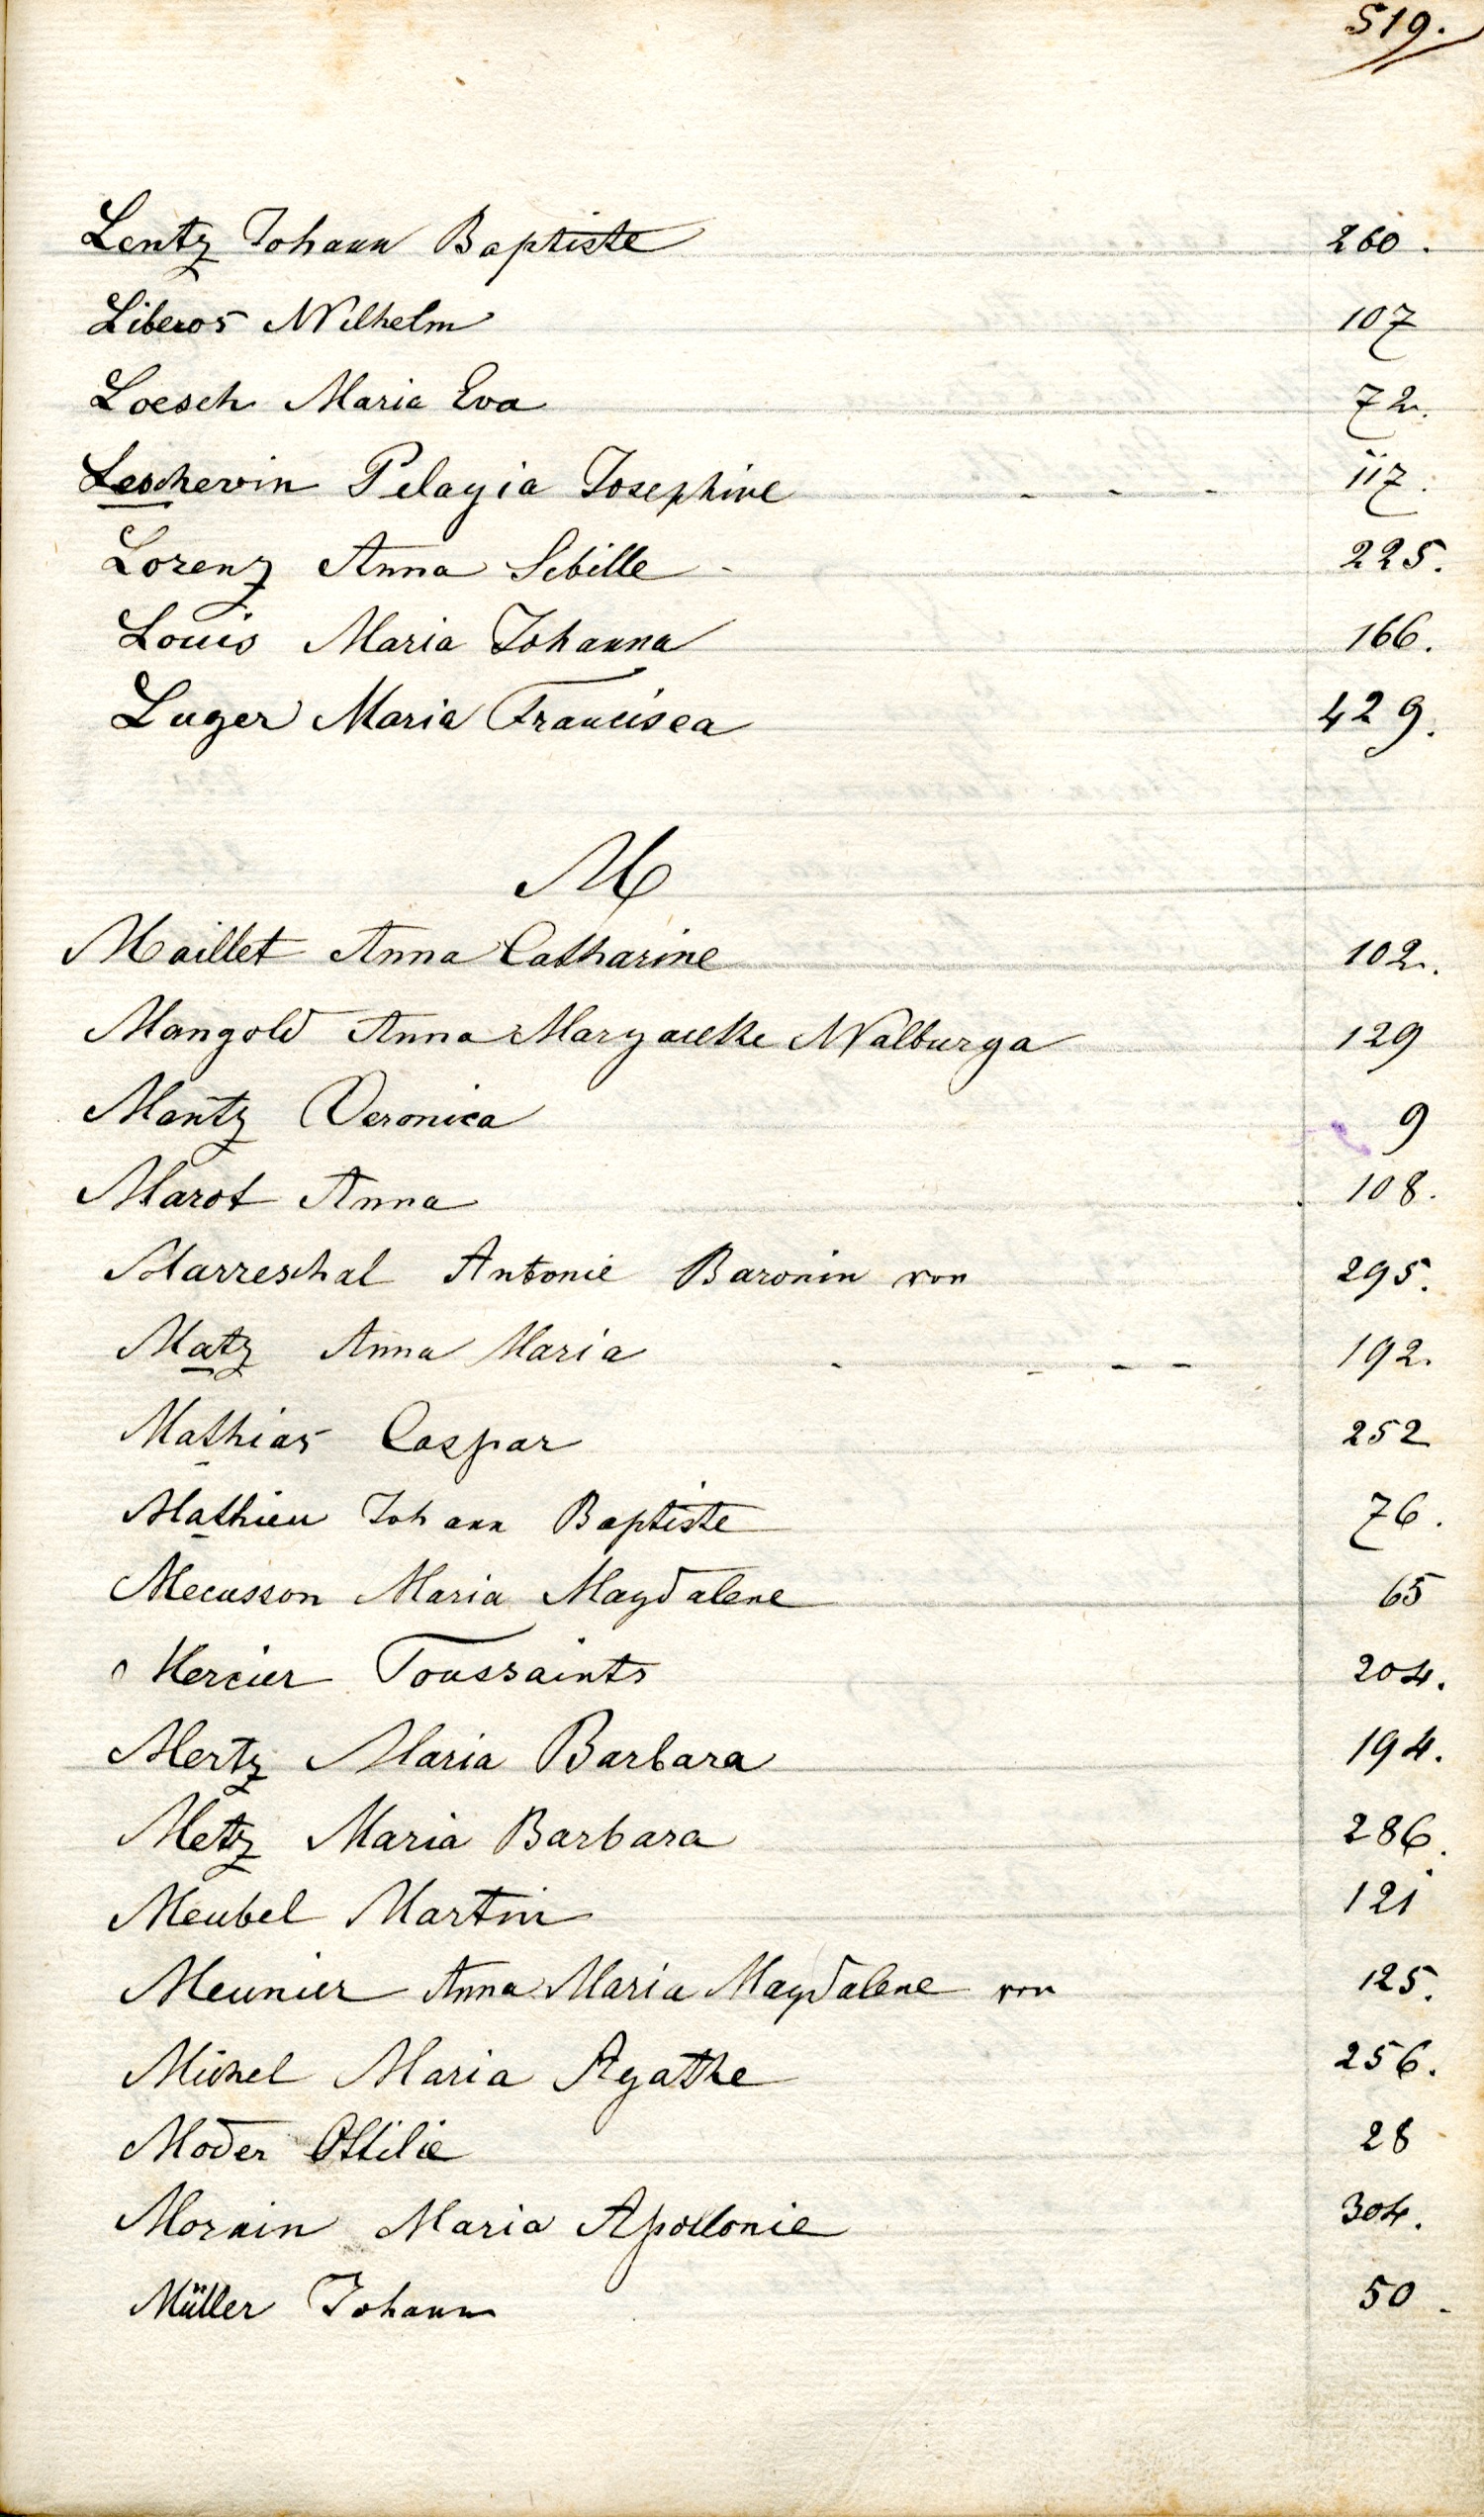 519.
Lentz Johann Baptiste 260.
Liberos Wilhelm 107
Loesch Maria Eva 72.
Leschevin Pelagia Josephine - - - 117.
Lorenz Anna Sebille - 225.
Louis Maria Johanna 166.
Luger Maria Francisca 429.
M
Maillet Anna Catharine 102.
Mangold Anna Margarethe Walburga 129
Mantz Veronica 9
Marot Anna 108.
Marreschal Antonie Baronin von 295.
Matz Anna Maria - - - - 192.
Mathias Caspar 252
Mathieu Johann Baptiste 76.
Mecusson Maria Magdalene 65
Mercier Toussaints 204.
Mertz Maria Barbara 194.
Metz Maria Barbara 286.
Meubel Martin 121
Meunier Anna Maria Magdalene von 125.
Michel Maria Agathe 256.
Moder Ottilie 28
Morain Maria Apollonie 304.
Müller Johann 50.